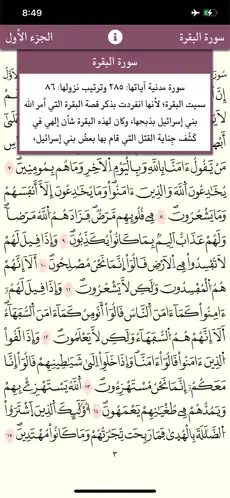 8:49
الجزء الأول
سورة البقرة
سورة البقرة
سورة مدنية آياتها: ٢٨٥ وترتيب نزولها: ٨٦
سميت البقرة؛ لأنها انفردت بذكر قصة البقرة التي أمر الله
بني إسرائيل بذبحها، وكان لهذه البقرة شأن إلهي في
كشف جناية القتل التي قام بها بعض بني إسرائيل.
مَن يَقُولُ ءَامَنَّا بِٱللَّهِ وَبِٱلْيَوْمِ ٱلْأٓخِرِ وَمَا هُم بِمُومِنِينَ ٧
يُخَٰدِعُونَ ٱللَّهَ وَٱلَّذِينَ ءَامَنُوا۟ وَمَا يُخَٰدِعُونَ إِلَّآ أَنفُسَهُمْ
وَمَا يَشْعُرُونَ ٨ فِى قُلُوبِهِم مَّرَضٌ فَزَادَهُمُ ٱللَّهُ مَرَضًا
وَلَهُمْ عَذَابٌ أَلِيمٌۢ بِمَا كَانُوا۟ يُكَذِّبُونَ ٩ وَإِذَا قِيلَ لَهُمْ
لَا تُفْسِدُوا۟ فِى ٱلْأَرْضِ قَالُوٓا۟ إِنَّمَا نَحْنُ مُصْلِحُونَ ١٠ أَلَآ إِنَّهُمْ
هُمُ ٱلْمُفْسِدُونَ وَلَٰكِن لَّا يَشْعُرُونَ ١١ وَإِذَا قِيلَ لَهُمْ
ءَامِنُوا۟ كَمَآ ءَامَنَ ٱلنَّاسُ قَالُوٓا۟ أَنُومِنُ كَمَآ ءَامَنَ ٱلسُّفَهَآءُ
أَلَآ إِنَّهُمْ هُمُ ٱلسُّفَهَآءُ وَلَٰكِن لَّا يَعْلَمُونَ ١٢ وَإِذَا لَقُوا۟
ٱلَّذِينَ ءَامَنُوا۟ قَالُوٓا۟ ءَامَنَّا وَإِذَا خَلَوِا۟ اِلَىٰ شَيَٰطِينِهِمْ قَالُوٓا۟ إِنَّا
مَعَكُمُۥٓ إِنَّمَا نَحْنُ مُسْتَهْزِءُونَ ١٣ ٱللَّهُ يَسْتَهْزِئُ بِهِمْ
وَيَمُدُّهُمْ فِى طُغْيَٰنِهِمْ يَعْمَهُونَ ١٤ أُو۟لَٰٓئِكَ ٱلَّذِينَ ٱشْتَرَوُا۟
ٱلضَّلَٰلَةَ بِٱلْهُدَىٰ فَمَا رَبِحَت تِّجَٰرَتُهُمْ وَمَا كَانُوا۟ مُهْتَدِينَ ١٥
٣